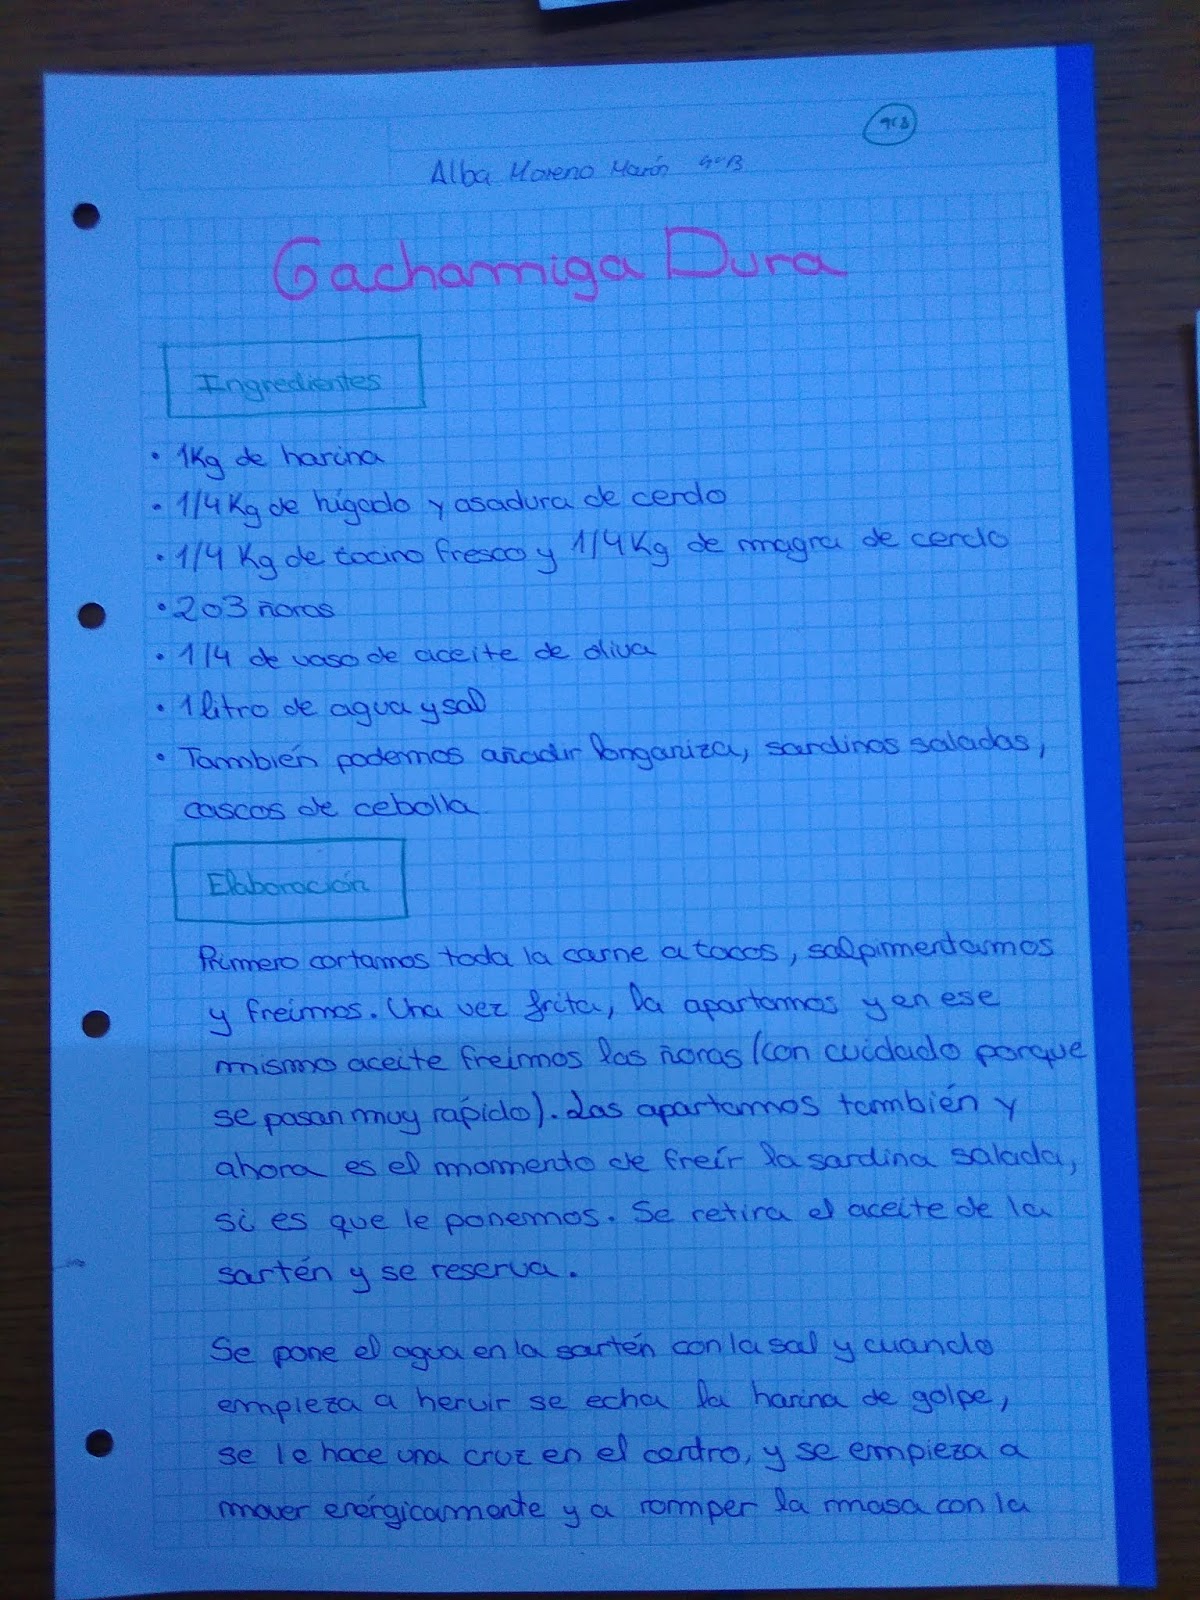 Alba Moreno Marín
Gachamiga Dura
Ingredientes
• 1Kg de harina
• 1/4 Kg de hígado y asadura de cerdo
• 1/4 Kg de tocino fresco y 1/4 Kg de magra de cerdo
• 2 o 3 ñoras
• 1/4 de vaso de aceite de oliva
• 1 litro de agua y sal
• También podemos añadir longaniza, sardinas saladas,
cascos de cebolla
Elaboración
Primero cortamos toda la carne a tacos, salpimentamos
y freímos. Una vez frita, la apartamos y en ese
mismo aceite freímos las ñoras (con cuidado porque
se pasan muy rápido). Las apartamos también y
ahora es el momento de freír la sardina salada,
si es que le ponemos. Se retira el aceite de la
sartén y se reserva.
Se pone el agua en la sartén con la sal y cuando
empieza a hervir se echa la harina de golpe,
se le hace una cruz en el centro, y se empieza a
mover enérgicamente y a romper la masa con la